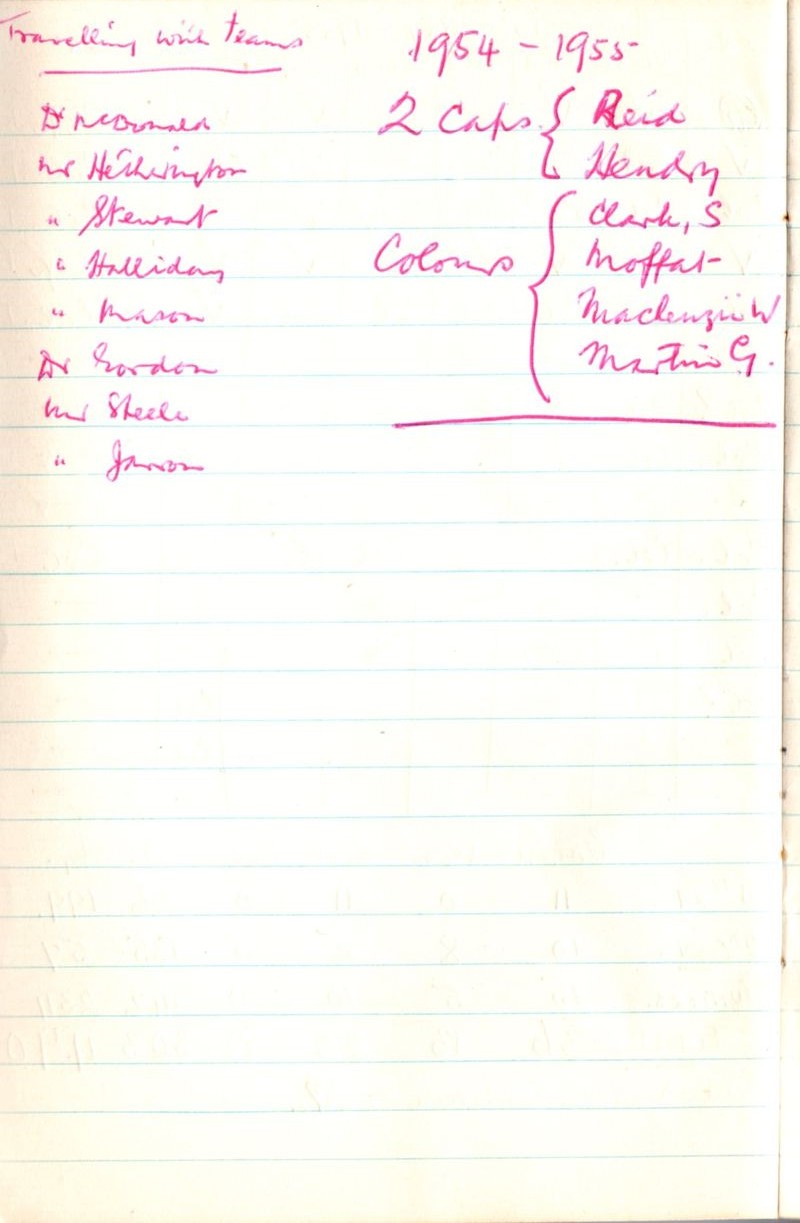 Travelling with teams
Dr McDonald
Mr Hetherington
" Stewart
" Halliday
" Mason
Dr Gordon
Mr Steele
" Jarron
1954 - 1955
2 Caps { Reid
Hendry
Colours { Clark, S
Moffat
Mackenzie W
Martin G.